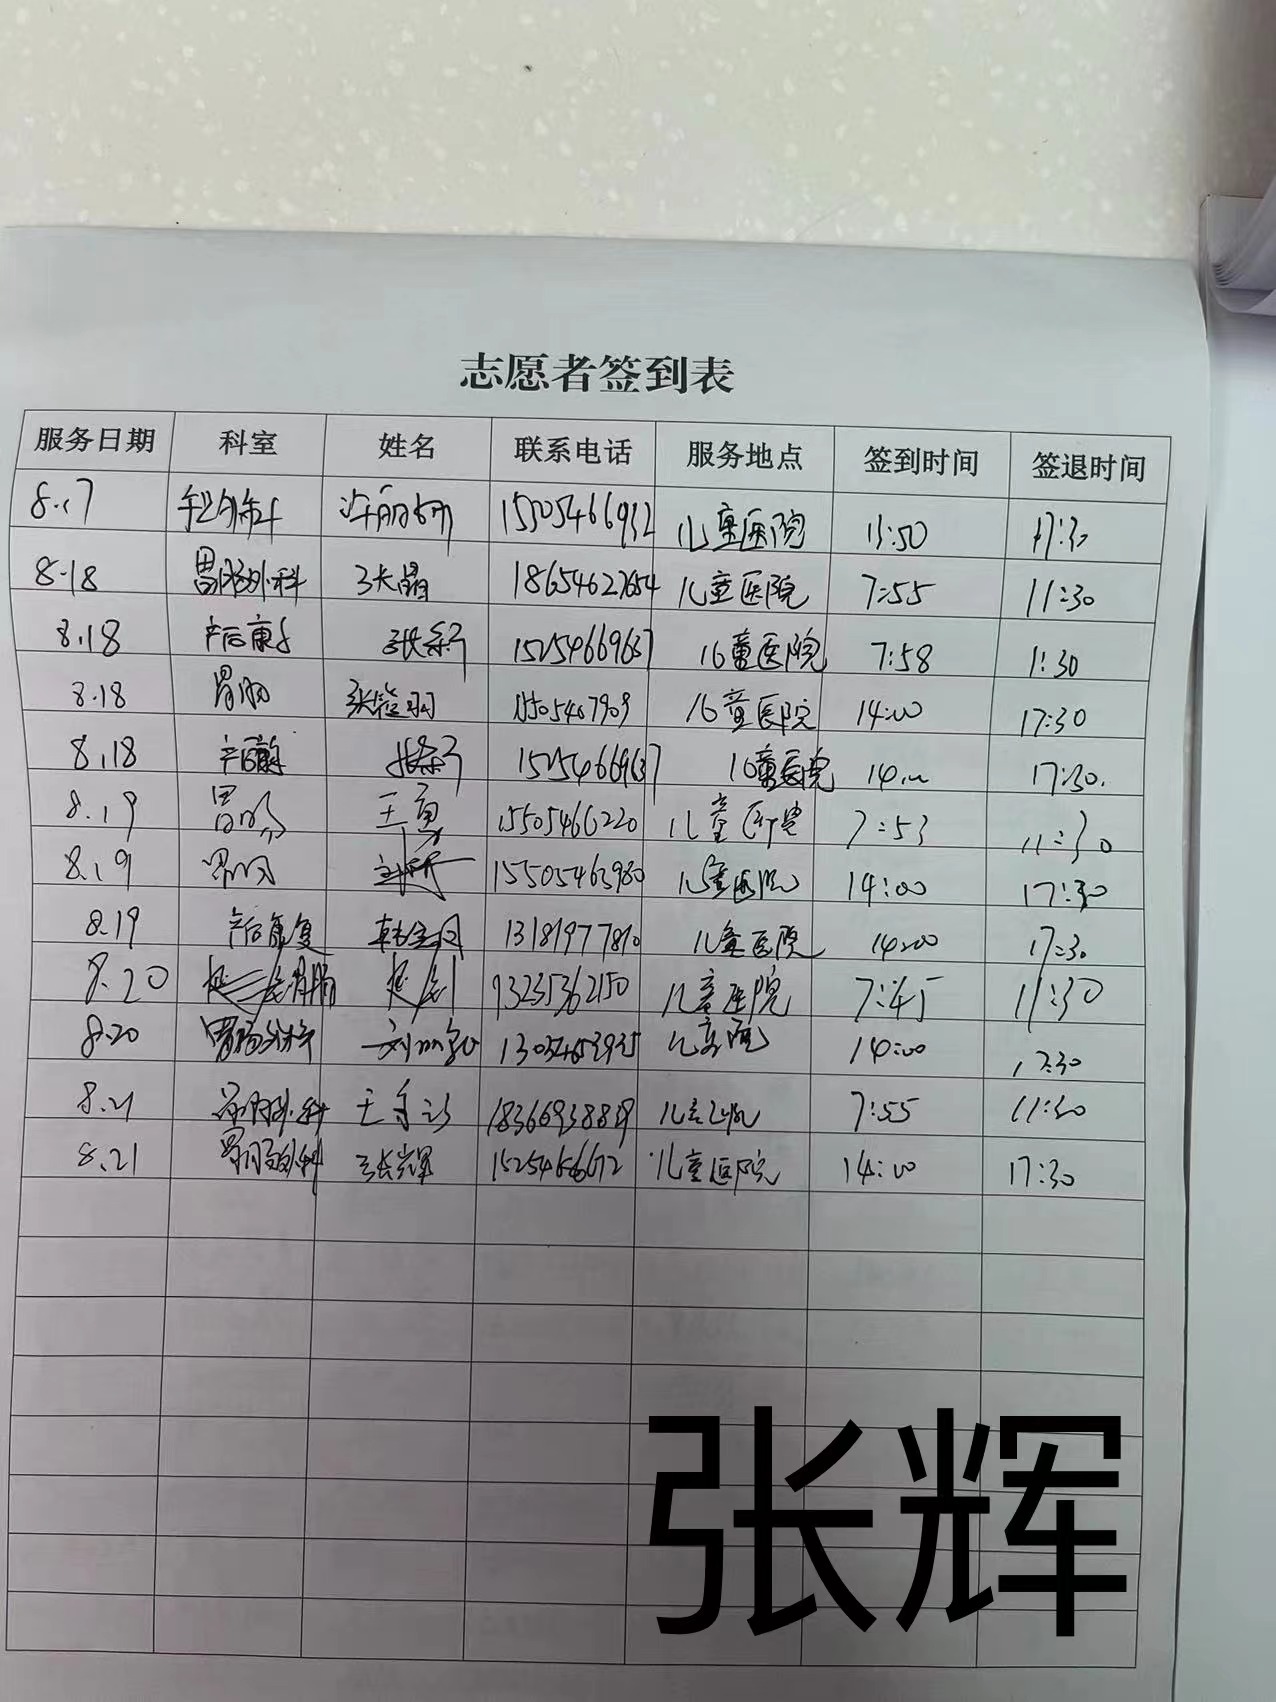 志愿者签到表
服务日期 科室 姓名 联系电话 服务地点 签到时间 签退时间
8.17 15505466932 儿童医院 13:50 17:30
8.18 胃肠外科 张晶 18654627654 儿童医院 7:55 11:30
8.18 产后康复 15254669637 儿童医院 7:58 1:30
8.18 胃肠 儿童医院 14:00 17:30
8.18 产后康复 15254669637 儿童医院 14:00 17:30.
8.19 胃肠 王勇 15505466220 儿童医院 7:53 11:30
8.19 胃肠 15505463980 儿童医院 14:00 17:30
8.19 产后康复 13181977810 儿童医院 14:00 17:30
8.20 儿童医院 7:45 11:30
8.20 胃肠外科 儿童医院 14:00 17:30
8.21 胃肠外科 18366938839 儿童医院 7:55 11:30
8.21 胃肠外科 张辉 儿童医院 14:00 17:30
张辉